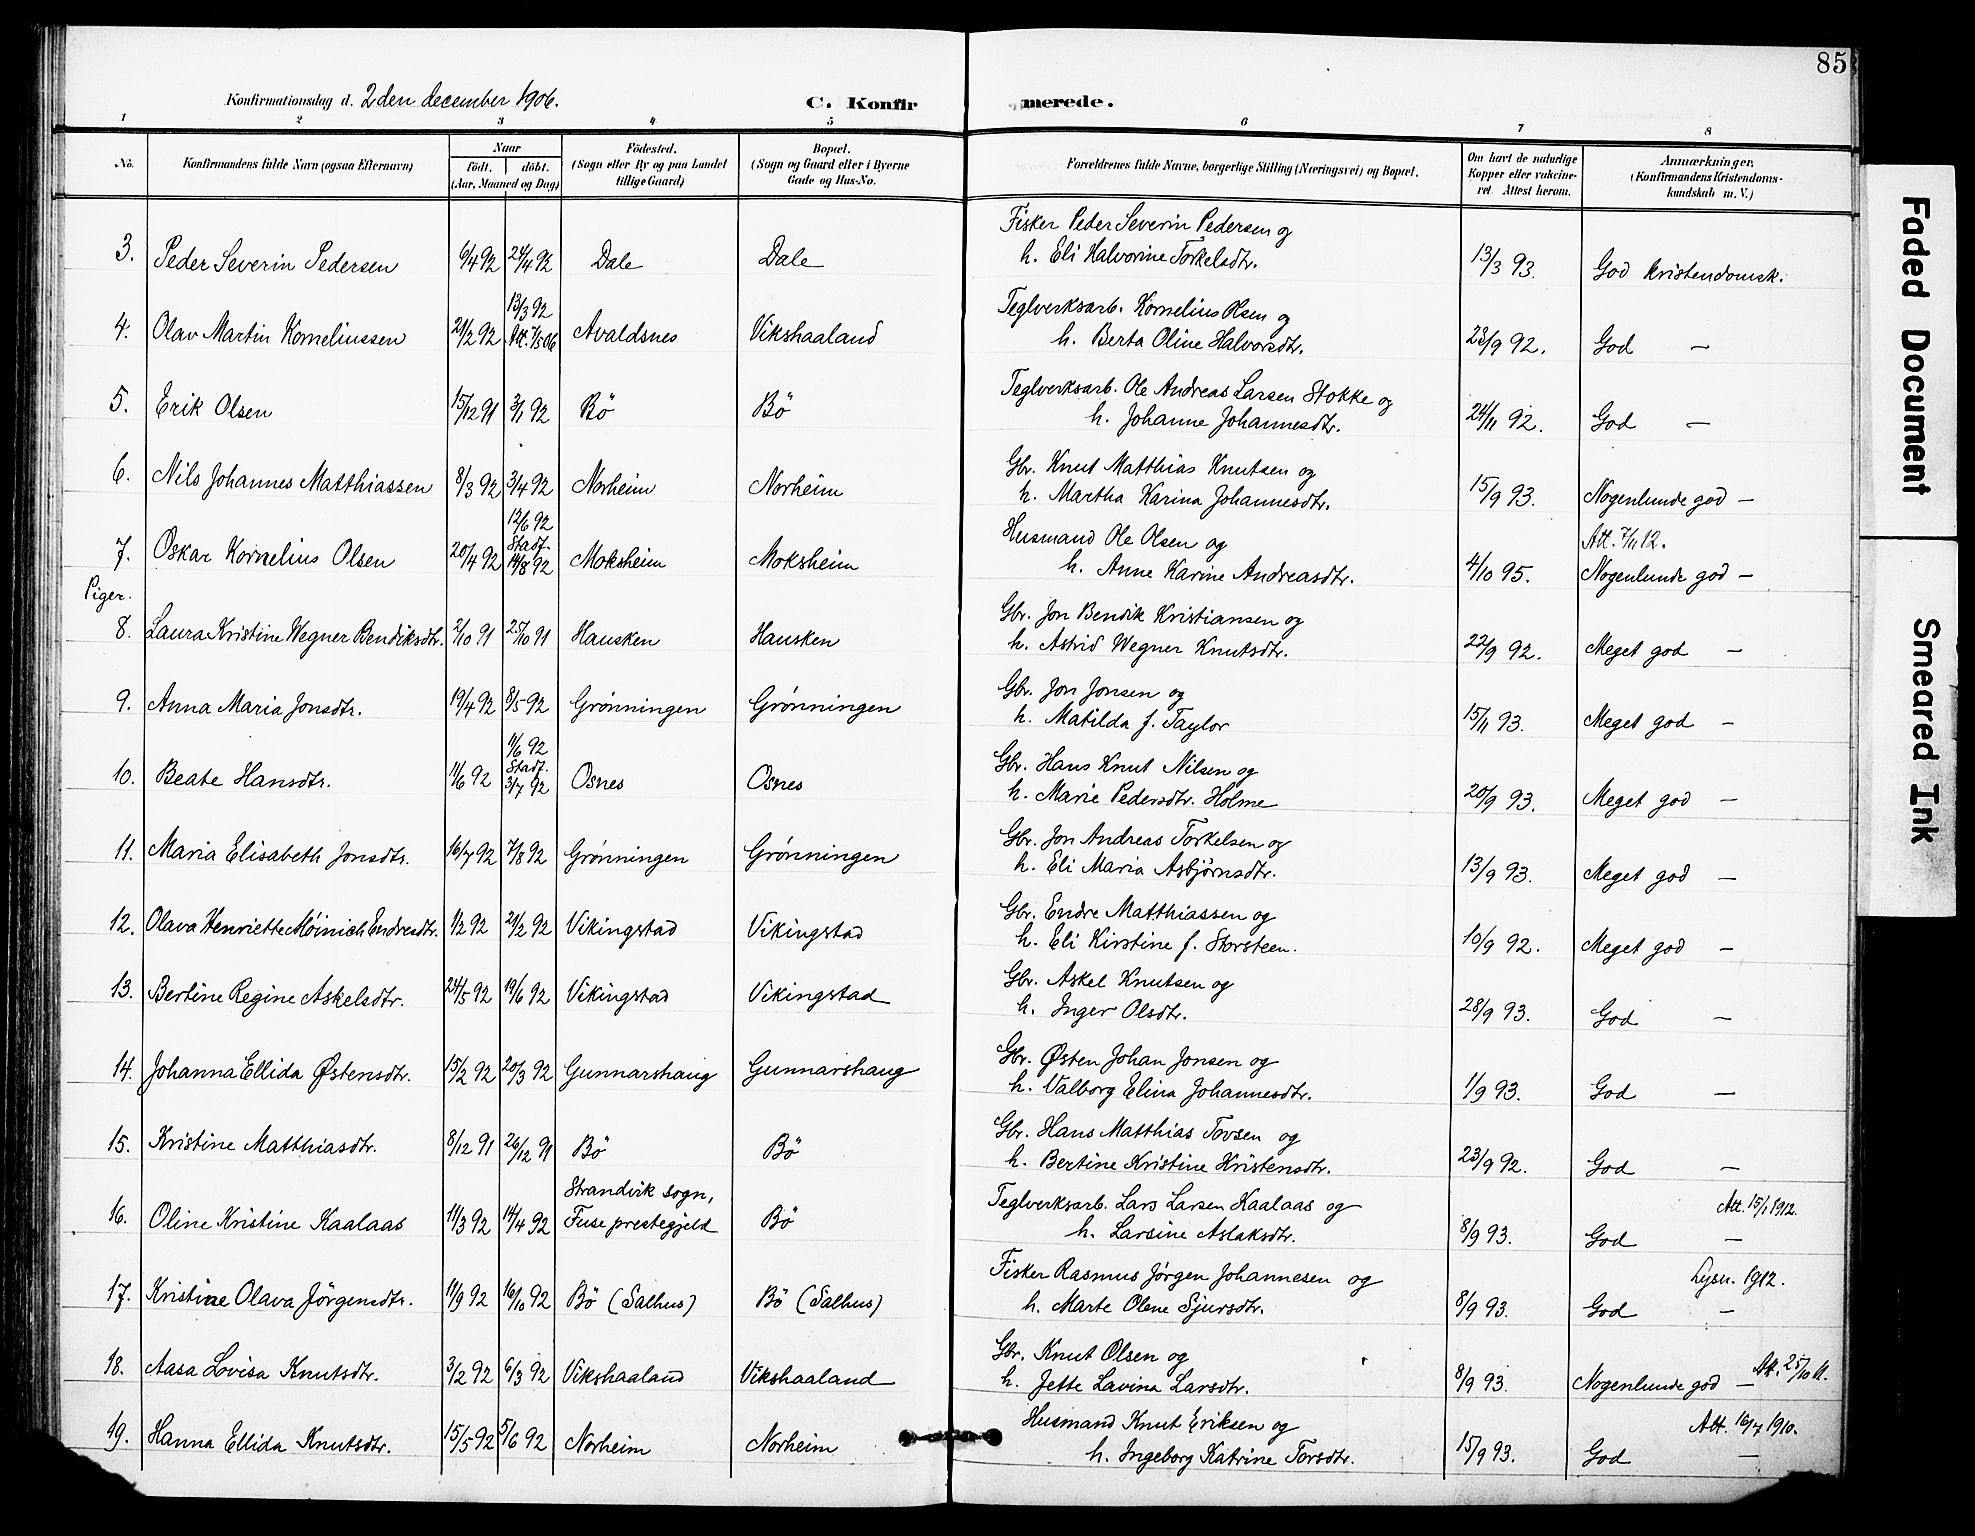 85
Konfirmationsdag d. 2den december 1906.
C. Konfirmerede.
1 2 3 4 5 6 7 8
No.
Konfirmandens fulde Navn (ogsaa Efternavn)
Naar
født. døbt.
(Aar, Maaned og Dag)
Fødested.
(Sogn eller By og paa Landet
tillige Gaard)
Bopæl.
(Sogn og Gaard eller i Byerne
Gade og Hus-No.
Forældrenes fulde Navne, borgerlige Stilling (Næringsvei) og Bopæl.
Om havt de naturlige
Kopper eller vakcine-
ret. Attest herom.
Anmærkninger.
(Konfirmandens Kristendoms-
kundskab m. V.)
Fisker Peder Severin Pedersen og
3. Peder Severin Pedersen 6/4 92 24/4 92 Dale Dale h. Eli Halvorine Torkelsdtr. 13/3 93. God kristendomsk.
13/3 92 Teglverksarb. Kornelius Olsen og
4. Olav Martin Korneliussen 21/2 92 Att. 7/5 06 Avaldsnes Vikshaaland h. Berta Oline Halvorsdtr. 23/9 92. God —
Teglverksarb. Ole Andreas Larsen Stokke og
5. Erik Olsen 15/12 91 3/1 92 Bö Bö h. Johanne Johannesdtr. 24/11 92. God —
Gbr. Knut Matthias Knutsen og
6. Nils Johannes Matthiassen 8/3 92 3/4 92 Norheim Norheim h. Martha Karina Johannesdtr. 15/9 93. Nogenlunde god —
12/6 92 Husmand Ole Olsen og Att. 7/11 12.
Stadf.
7. Oskar Kornelius Olsen 20/4 92 14/8 92 Moksheim Moksheim h. Anne Karine Andreasdtr. 4/10 95. Nogenlunde god —
Piger.
Gbr. Jon Bendik Kristiansen og
8. Laura Kristine Wegner Bendiksdtr. 2/10 91 25/10 91 Hausken Hausken h. Astrid Wegner Knutsdtr. 22/9 92. Meget god —
Gbr. Jon Jonsen og
9. Anna Maria Jonsdtr. 19/4 92 8/5 92 Grönningen Grönningen h. Matilda f. Taylor 15/11 93. Meget god —
11/6 92 Gbr. Hans Knut Nilsen og
Stadf.
10. Beate Hansdtr. 11/6 92 3/7 92 Osnes Osnes h. Marie Pedersdtr. Holme 20/9 93. Meget god —
Gbr. Jon Andreas Torkelsen og
11. Maria Elisabeth Jonsdtr. 16/7 92 7/8 92 Grönningen Grönningen h. Eli Maria Asbjørnsdtr. 13/9 93. Meget god —
Gbr. Endre Matthiassen og
12. Olava Henriette Møinich Endresdtr. 1/2 92 21/2 92 Vikingstad Vikingstad h. Eli Kirstine f. Storsteen. 10/9 92. Meget god —
Gbr. Askel Knutsen og
13. Bertine Regine Askelsdtr. 24/5 92 19/6 92 Vikingstad Vikingstad h. Inger Olsdtr. 28/9 93. God —
Gbr. Østen Johan Jonsen og
14. Johanna Ellida Østensdtr. 15/2 92 20/3 92 Gunnarshaug Gunnarshaug h. Valborg Elina Johannesdtr. 1/9 93. God —
Gbr. Hans Matthias Tovsen og
15. Kristine Matthiasdtr. 8/12 91 26/12 91 Bö Bö h. Bertine Kristine Kristensdtr. 23/9 92. God —
Strandvik sogn, Teglverksarb. Lars Larsen Kaalaas og Att. 15/1 1912.
16. Oline Kristine Kaalaas 11/3 92 14/4 92 Fuse prestegjeld Bö h. Larsine Aslaksdtr. 8/9 93. God —
Fisker Rasmus Jörgen Johannesen og Lysn. 1912.
17. Kristine Olava Jörgensdtr. 11/9 92 16/10 92 Bö (Salhus) Bö (Salhus) h. Marte Olene Sjursdtr. 8/9 93. God —
Gbr. Knut Olsen og
18. Aasa Lovisa Knutsdtr. 3/2 92 6/3 92 Vikshaaland Vikshaaland h. Jette Lavina Larsdtr. 8/9 93. Nogenlunde god — Att. 25/10 11.
Husmand Knut Eriksen og Att. 16/7 1910.
19. Hanna Ellida Knutsdtr. 15/5 92 5/6 92 Norheim Norheim h. Ingeborg Katrine Torsdtr. 15/9 93. God —
Faded Document
Smeared Ink